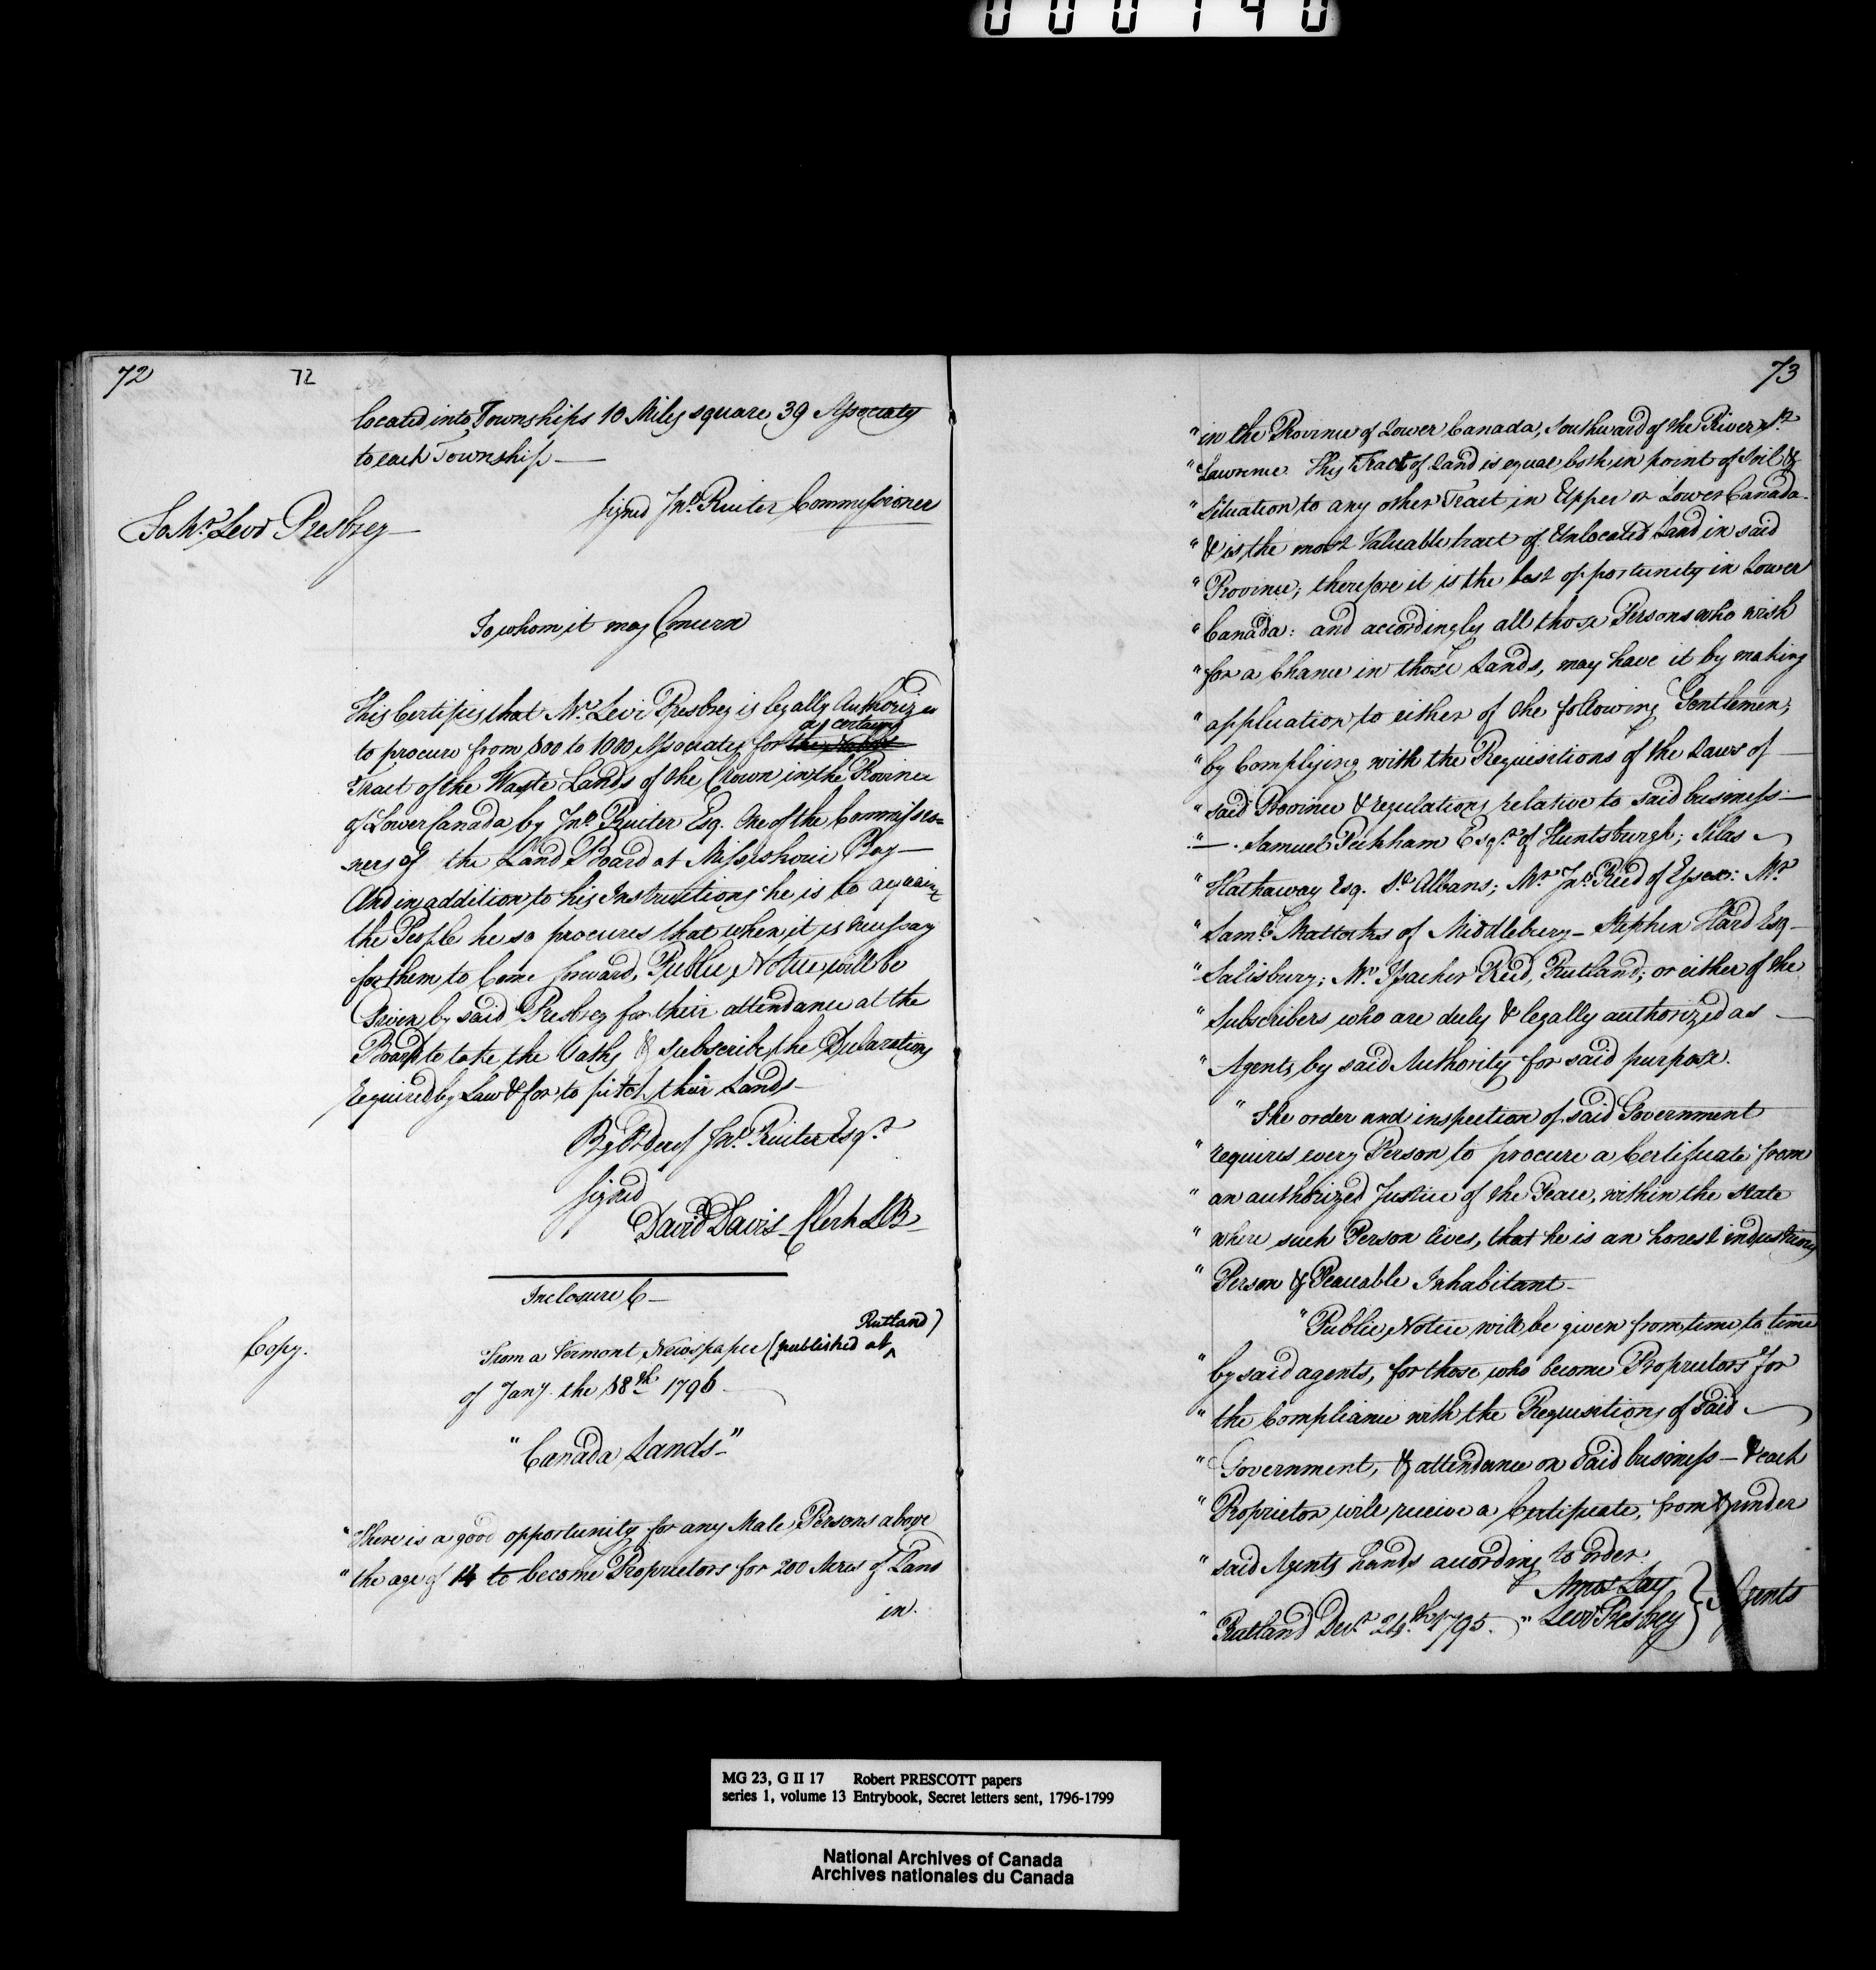 000740
72
72
located into Townships 10 Miles square, 39 Associates
to each Township —
Signed Jno. Ruiter Commissioner
To Mr. Levi Presbrey —
To whom it may Concern
This Certifies that Mr. Levi Presbrey is legally Authorized
to procure from 800 to 1000 Associates for
Tract of the Waste Lands of the Crown in the Province
of Lower Canada by Jno. Ruiter Esq. One of the Commissio=
ners of the Land Board at Missiskoui Bay —
And in addition to his Instructions he is to acquaint
the People he so procures that when it is necessary
for them to Come forward, Public Notice will be
Given by said Presbrey for their attendance at the
Board to take the Oaths & Subscribe the Declarations
required by Law & for to pitch their Lands —
By Order of Jno. Ruiter Esqr.
Signed
David Davis — Clerk LB —
Inclosure C —
Copy.
Rutland)
From a Vermont Newspaper (published at ^
of Jany. the 18th. 1796 —
"Canada Lands —"
" There is a good opportunity for any Male Persons above
" the age of 14 to become Proprietors for 200 Acres of Land
in.
73
" in the Province of Lower Canada, Southward of the River St.
" Lawrence. This Tract of Land is equal both in point of Soil &
" Situation to any other Tract in Upper or Lower Canada
" & is the most Valuable tract of Unlocated Land in said
" Province; therefore it is the best opportunity in Lower
" Canada: and accordingly all those Persons who wish
" for a Chance in those Lands, may have it by making
" application to either of the following Gentlemen;
" by Complying with the Requisitions of the Laws of —
" said Province & regulations relative to said business —
" — . Samuel Peckham Esqr. of Huntsburgh; Silas —
" Hathaway Esq. St. Albans; Mr. Jno. Reed of Essex: Mr.
" Saml. Mattocks of Middlebury — Stephen Hard Esq —
" Salisbury; Mr. Issacher Reed, Rutland; or either of the
" Subscribers who are duly & legally authorized as —
" Agents by said Authority for said purpose.
" The order and inspection of said Government
" requires every Person to procure a Certificate from
" an authorized Justice of the Peace, within the State
" where such Person lives, that he is an honest industrious
" Person & Peaceable Inhabitant —
" Public Notice will be given from time to time
" by said agents, for those who become Proprietors for
" the Compliance with the Requisitions of said —
" Government, & attendance on said business — & each
" Proprietor will receive a Certificate, from & under
" said Agents hands according to order.
" Amos Lay
" Rutland Decr. 24th. 1795. " Levi Presbrey } Agents
MG 23, G II 17 Robert PRESCOTT papers
series 1, volume 13 Entrybook, Secret letters sent, 1796-1799
National Archives of Canada
Archives nationales du Canada